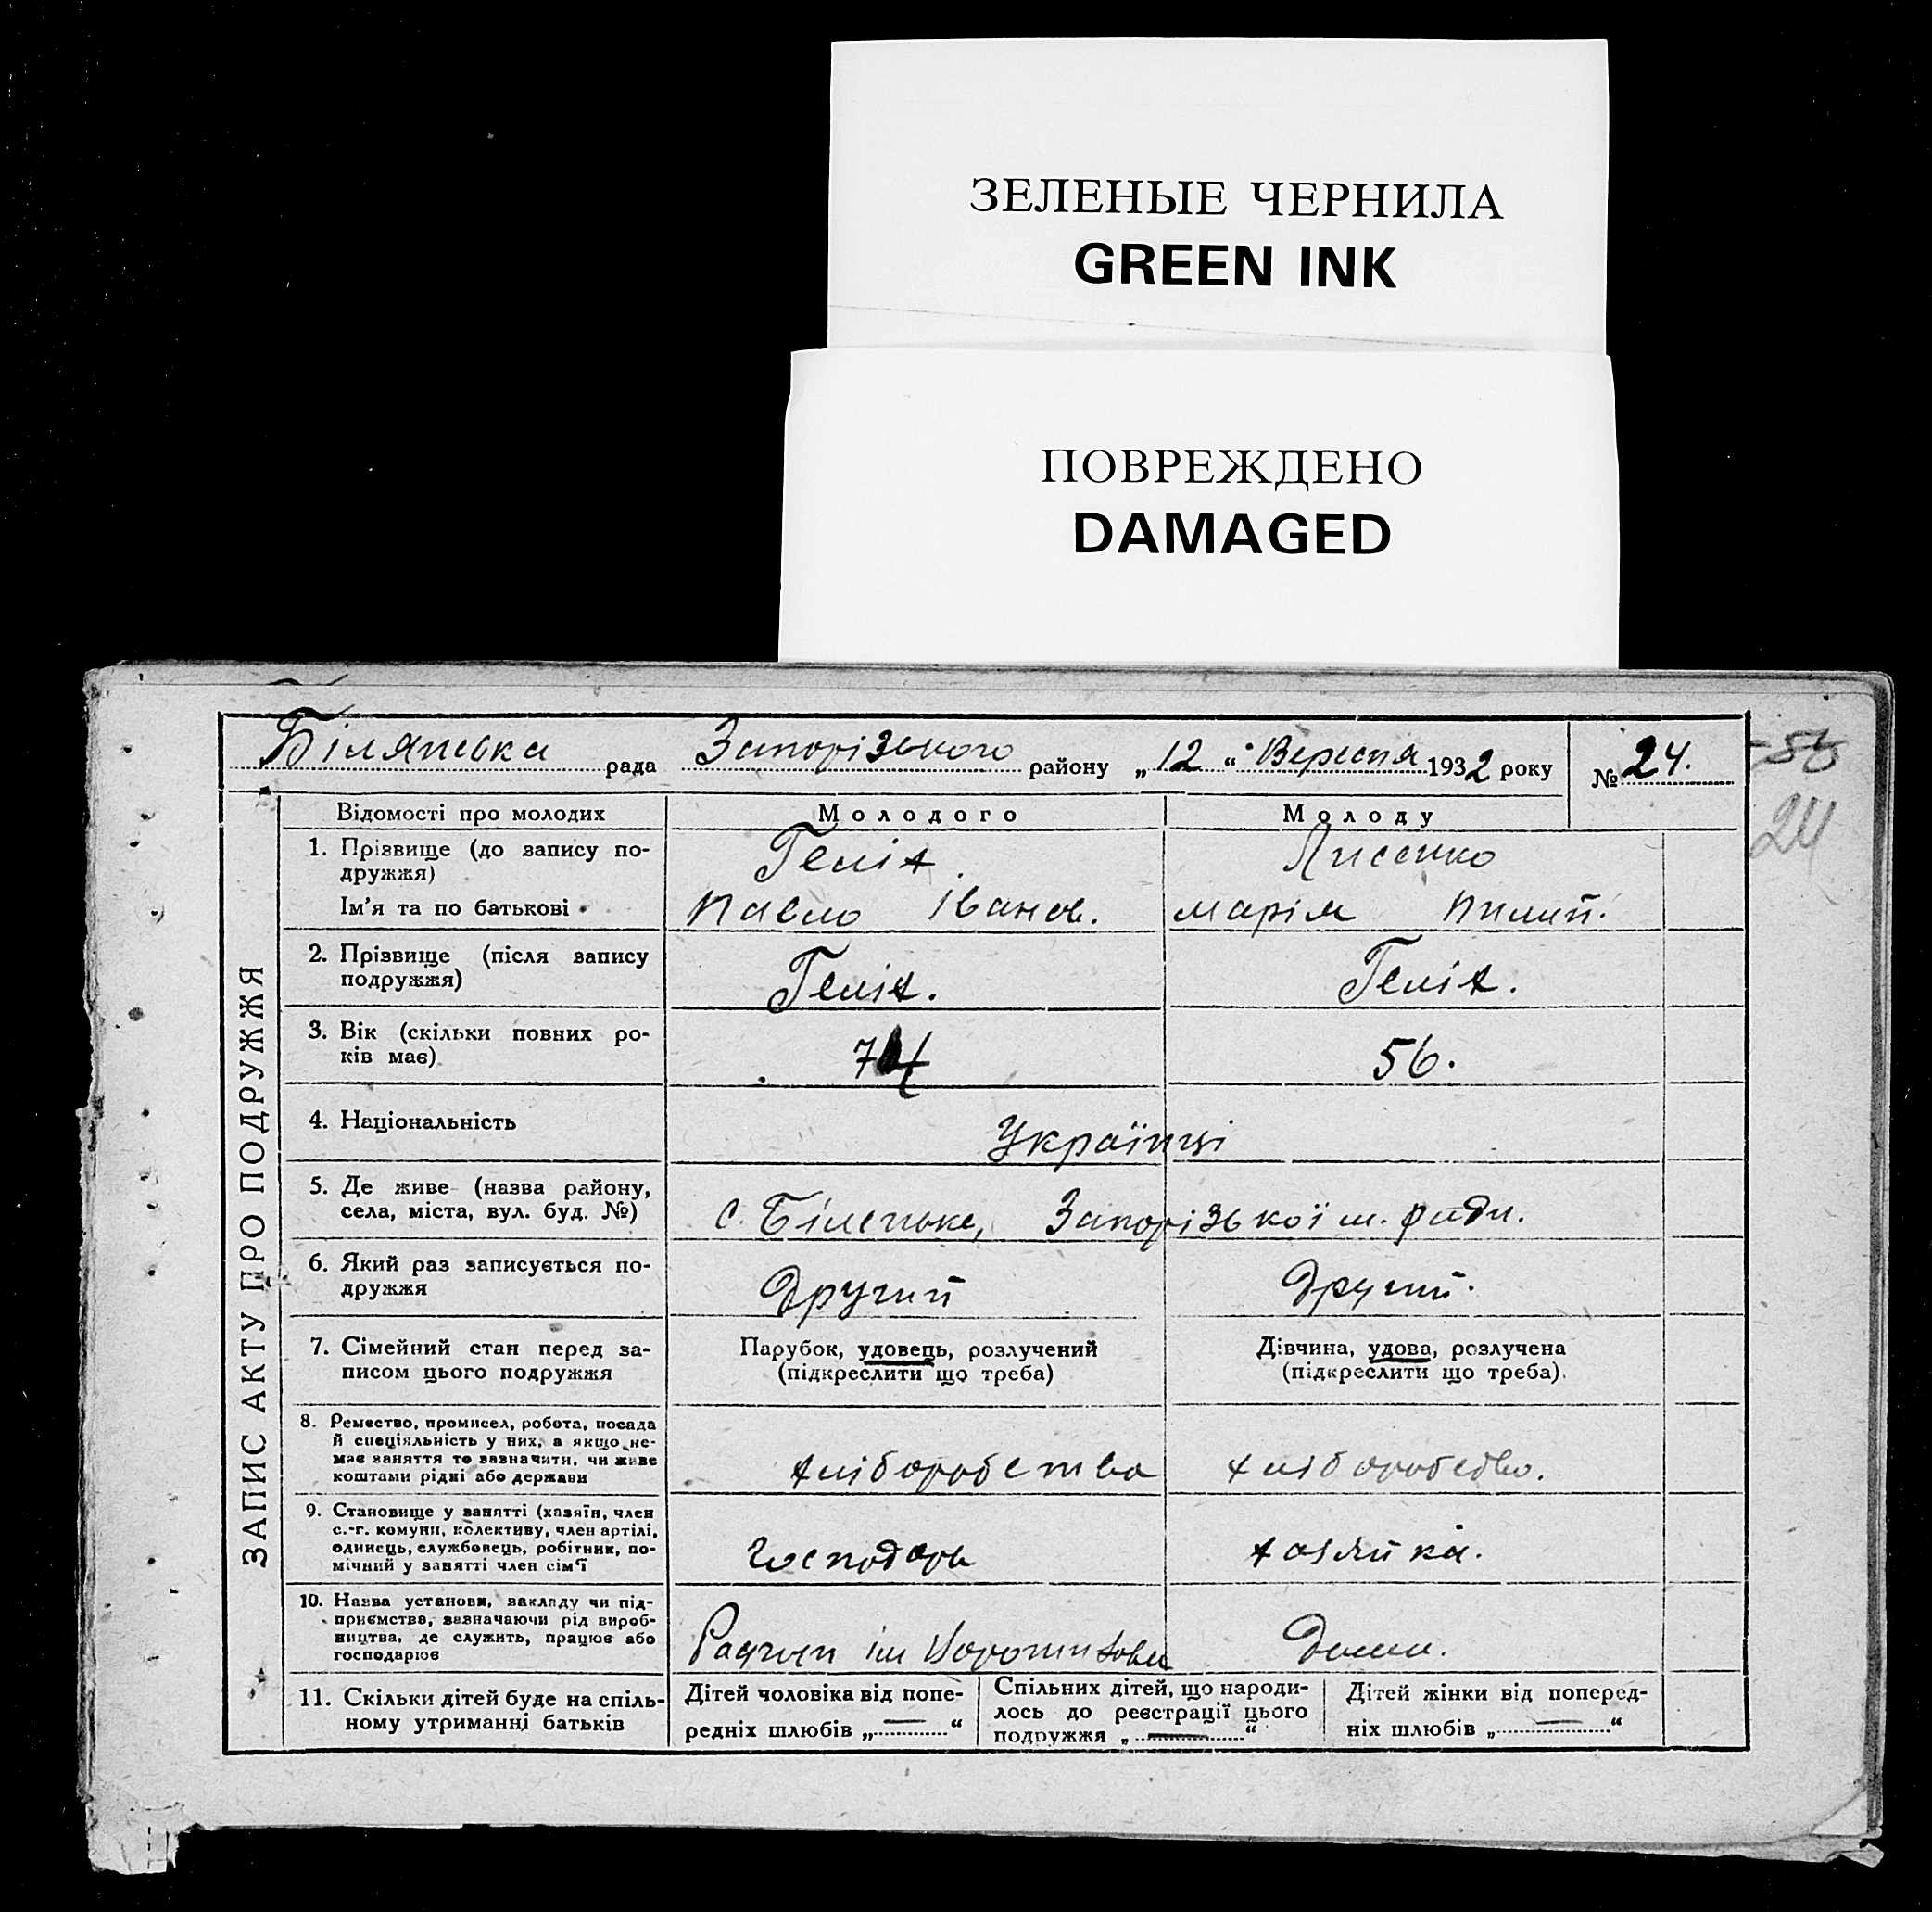 ЗЕЛЕНЫЕ ЧЕРНИЛА
GREEN INK
ПОВРЕЖДЕНО
DAMAGED
Білянська рада Запорізького району „12“ Вересня 1932 року № 24.
24
ЗАПИС АКТУ ПРО ПОДРУЖЖЯ
Відомості про молодих Молодого Молоду
1. Прізвище (до запису подружжя) Геліх Лисенко
Ім'я та по батькові Павло Іванов. Марія Пилип.
2. Прізвище (після запису подружжя) Геліх. Геліх.
3. Вік (скільки повних років має) 56.
4. Національність Українці
5. Де живе (назва району, села, міста, вул. буд. №) с. Біленьке, Запорізької м. ради.
6. Який раз записується подружжя Другий Другий.
7. Сімейний стан перед записом цього подружжя Парубок, удовець, розлучений (підкреслити що треба) Дівчина, удова, розлучена (підкреслити що треба)
8. Ремество, промисел, робота, посада й спеціяльність у них, а якщо немає заняття то зазначити, чи живе коштами рідні або держави хліборобство хліборобство.
9. Становище у занятті (хазяїн, член с.-г. комуни, колективу, член артілі, одинець, службовець, робітник, помічний у занятті член сім'ї Господарь хазяйка.
10. Назва установи, закладу чи підприємства, зазначаючи рід виробництва, де служить, працює або господарює Радгосп ім Ворошилова Дома.
11. Скільки дітей буде на спільному утриманні батьків Дітей чоловіка від попередніх шлюбів „—“ Спільних дітей, що народилось до реєстрації цього подружжя „—“ Дітей жінки від попередніх шлюбів „—“